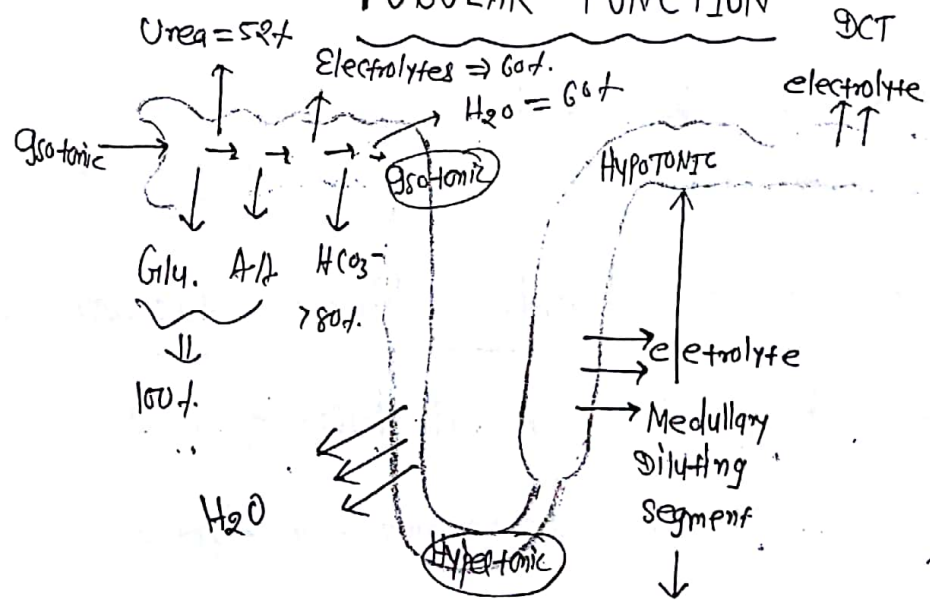 TUBULAR FUNCTION
Urea = 52%
Electrolytes ⇒ 60%.
H2O = 66%
DCT
electrolyte
Isotonic
Isotonic
HYPOTONIC
Glu. A.A HCO3-
>80%.
100%.
H2O
eletrolyte
Medullary
Diluting
segment
Hypertonic